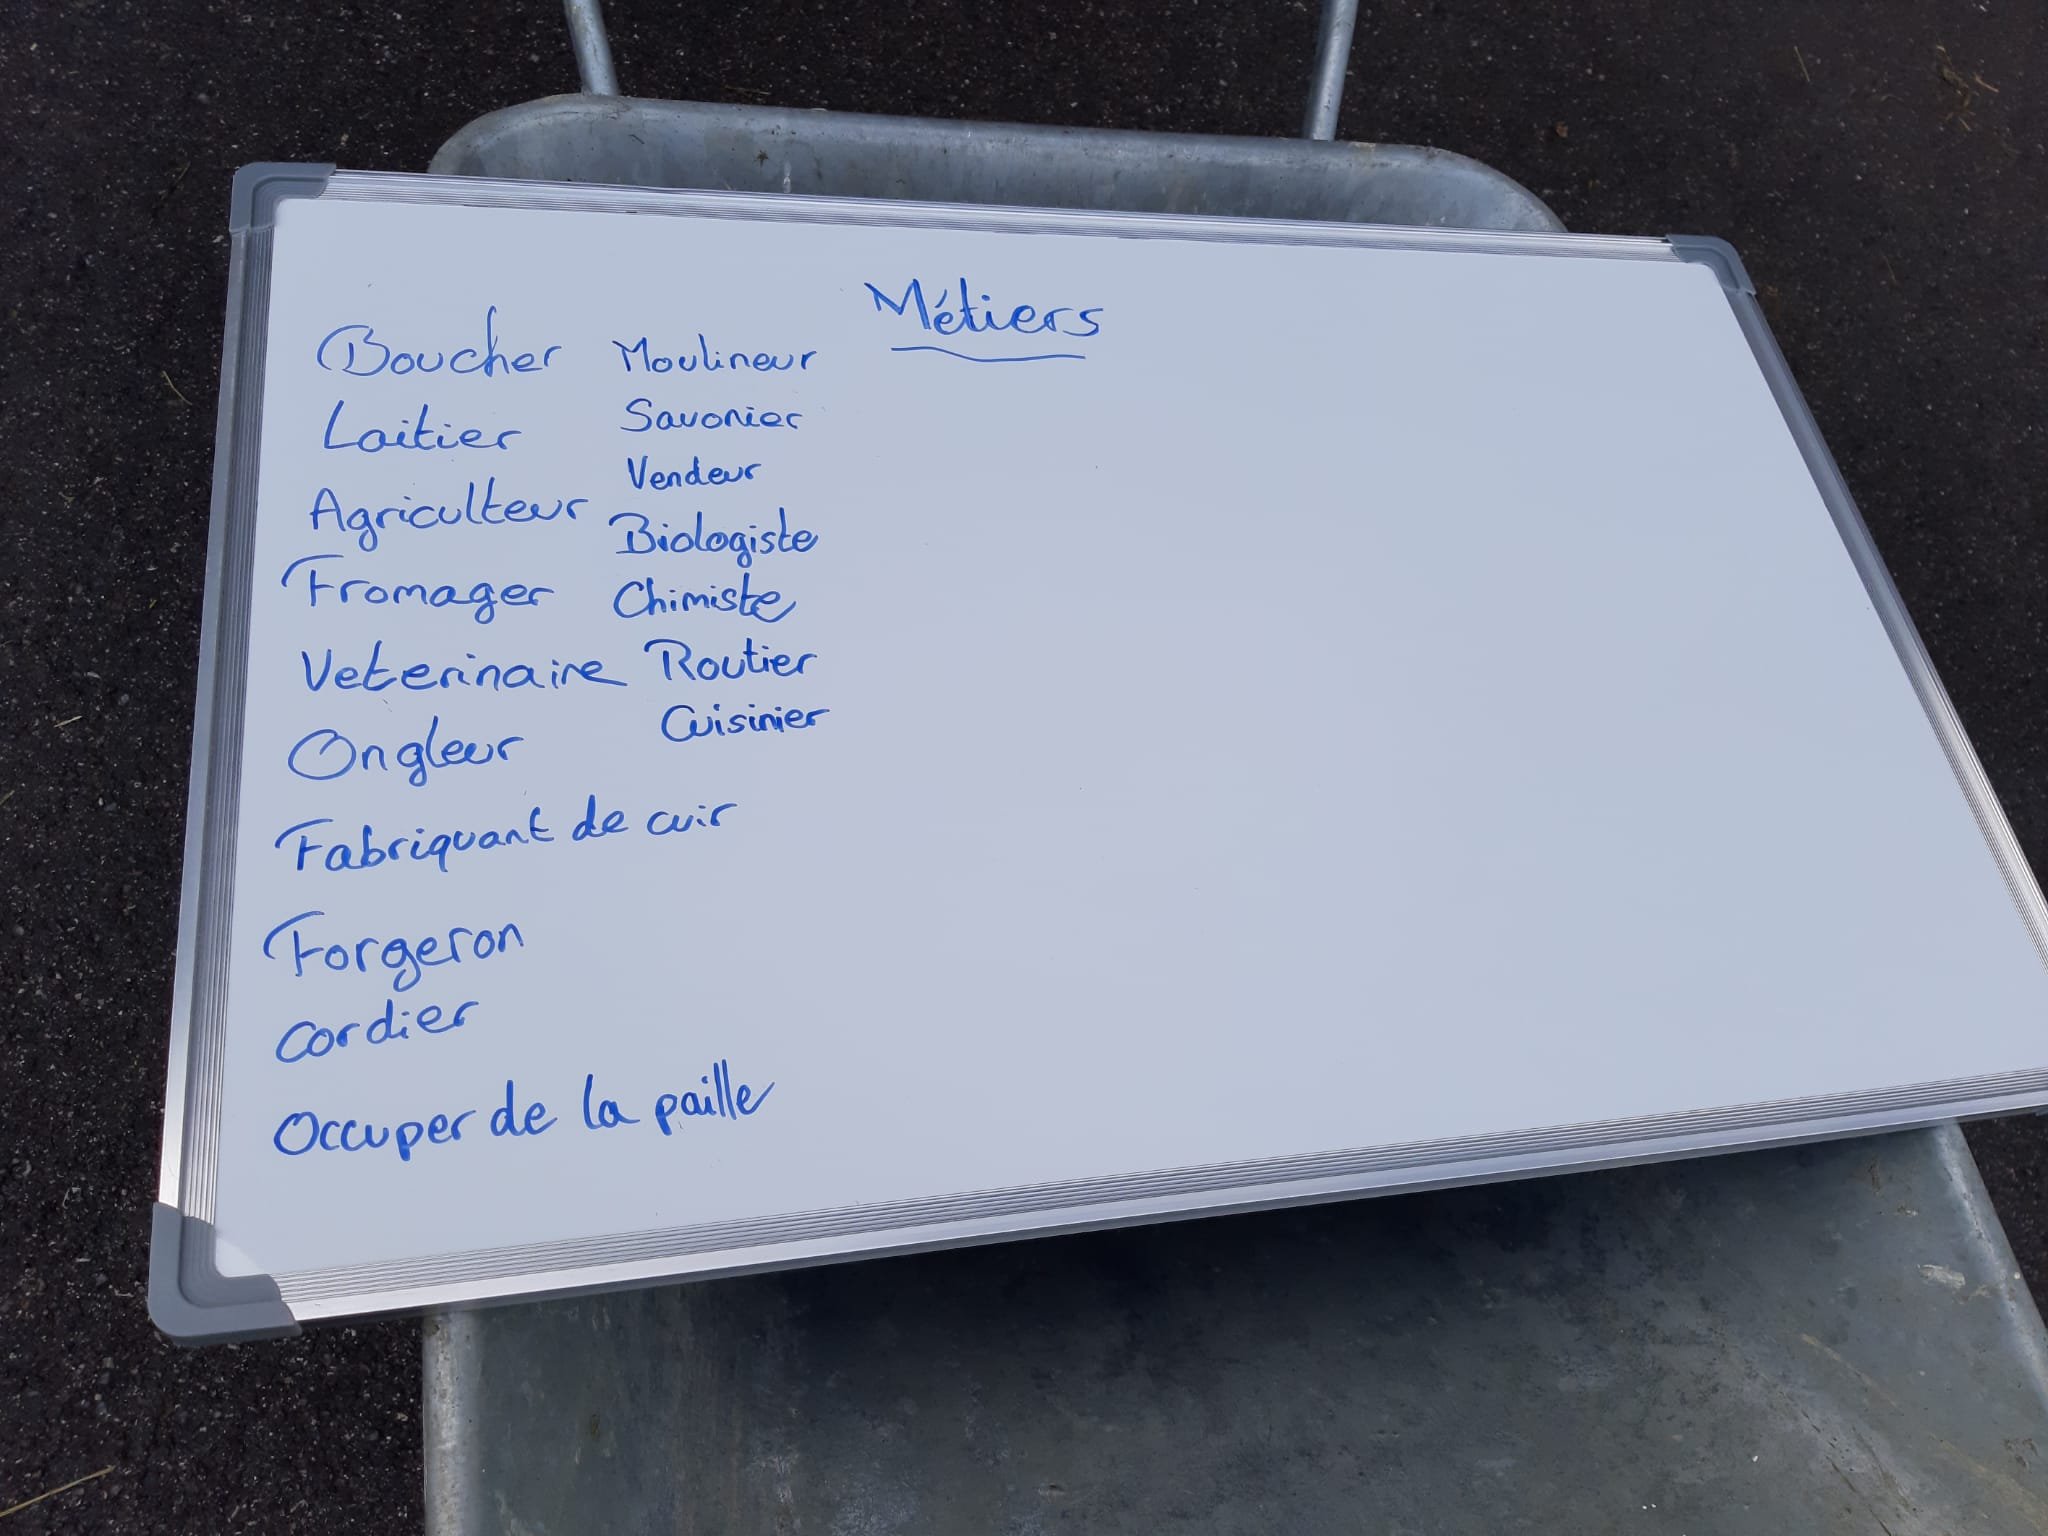 Métiers
Boucher
Laitier
Agriculteur
Fromager
Veterinaire
Ongleur
Fabriquant de cuir
Forgeron
Cordier
Occuper de la paille
Moulineur
Savonier
Vendeur
Biologiste
Chimiste
Routier
Cuisinier